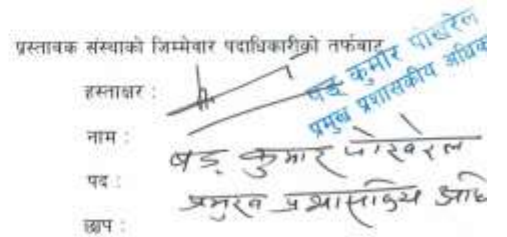 प्रस्तावक संस्थाको जिम्मेवार पदाधिकारीको तर्फबाट
हस्ताक्षर :
षड् कुमार पोखरेल
प्रमुख प्रशासकीय अधिक
नाम : षड् कुमार पोखरेल
पद : प्रमुख प्रशासकिय अधि
छाप :